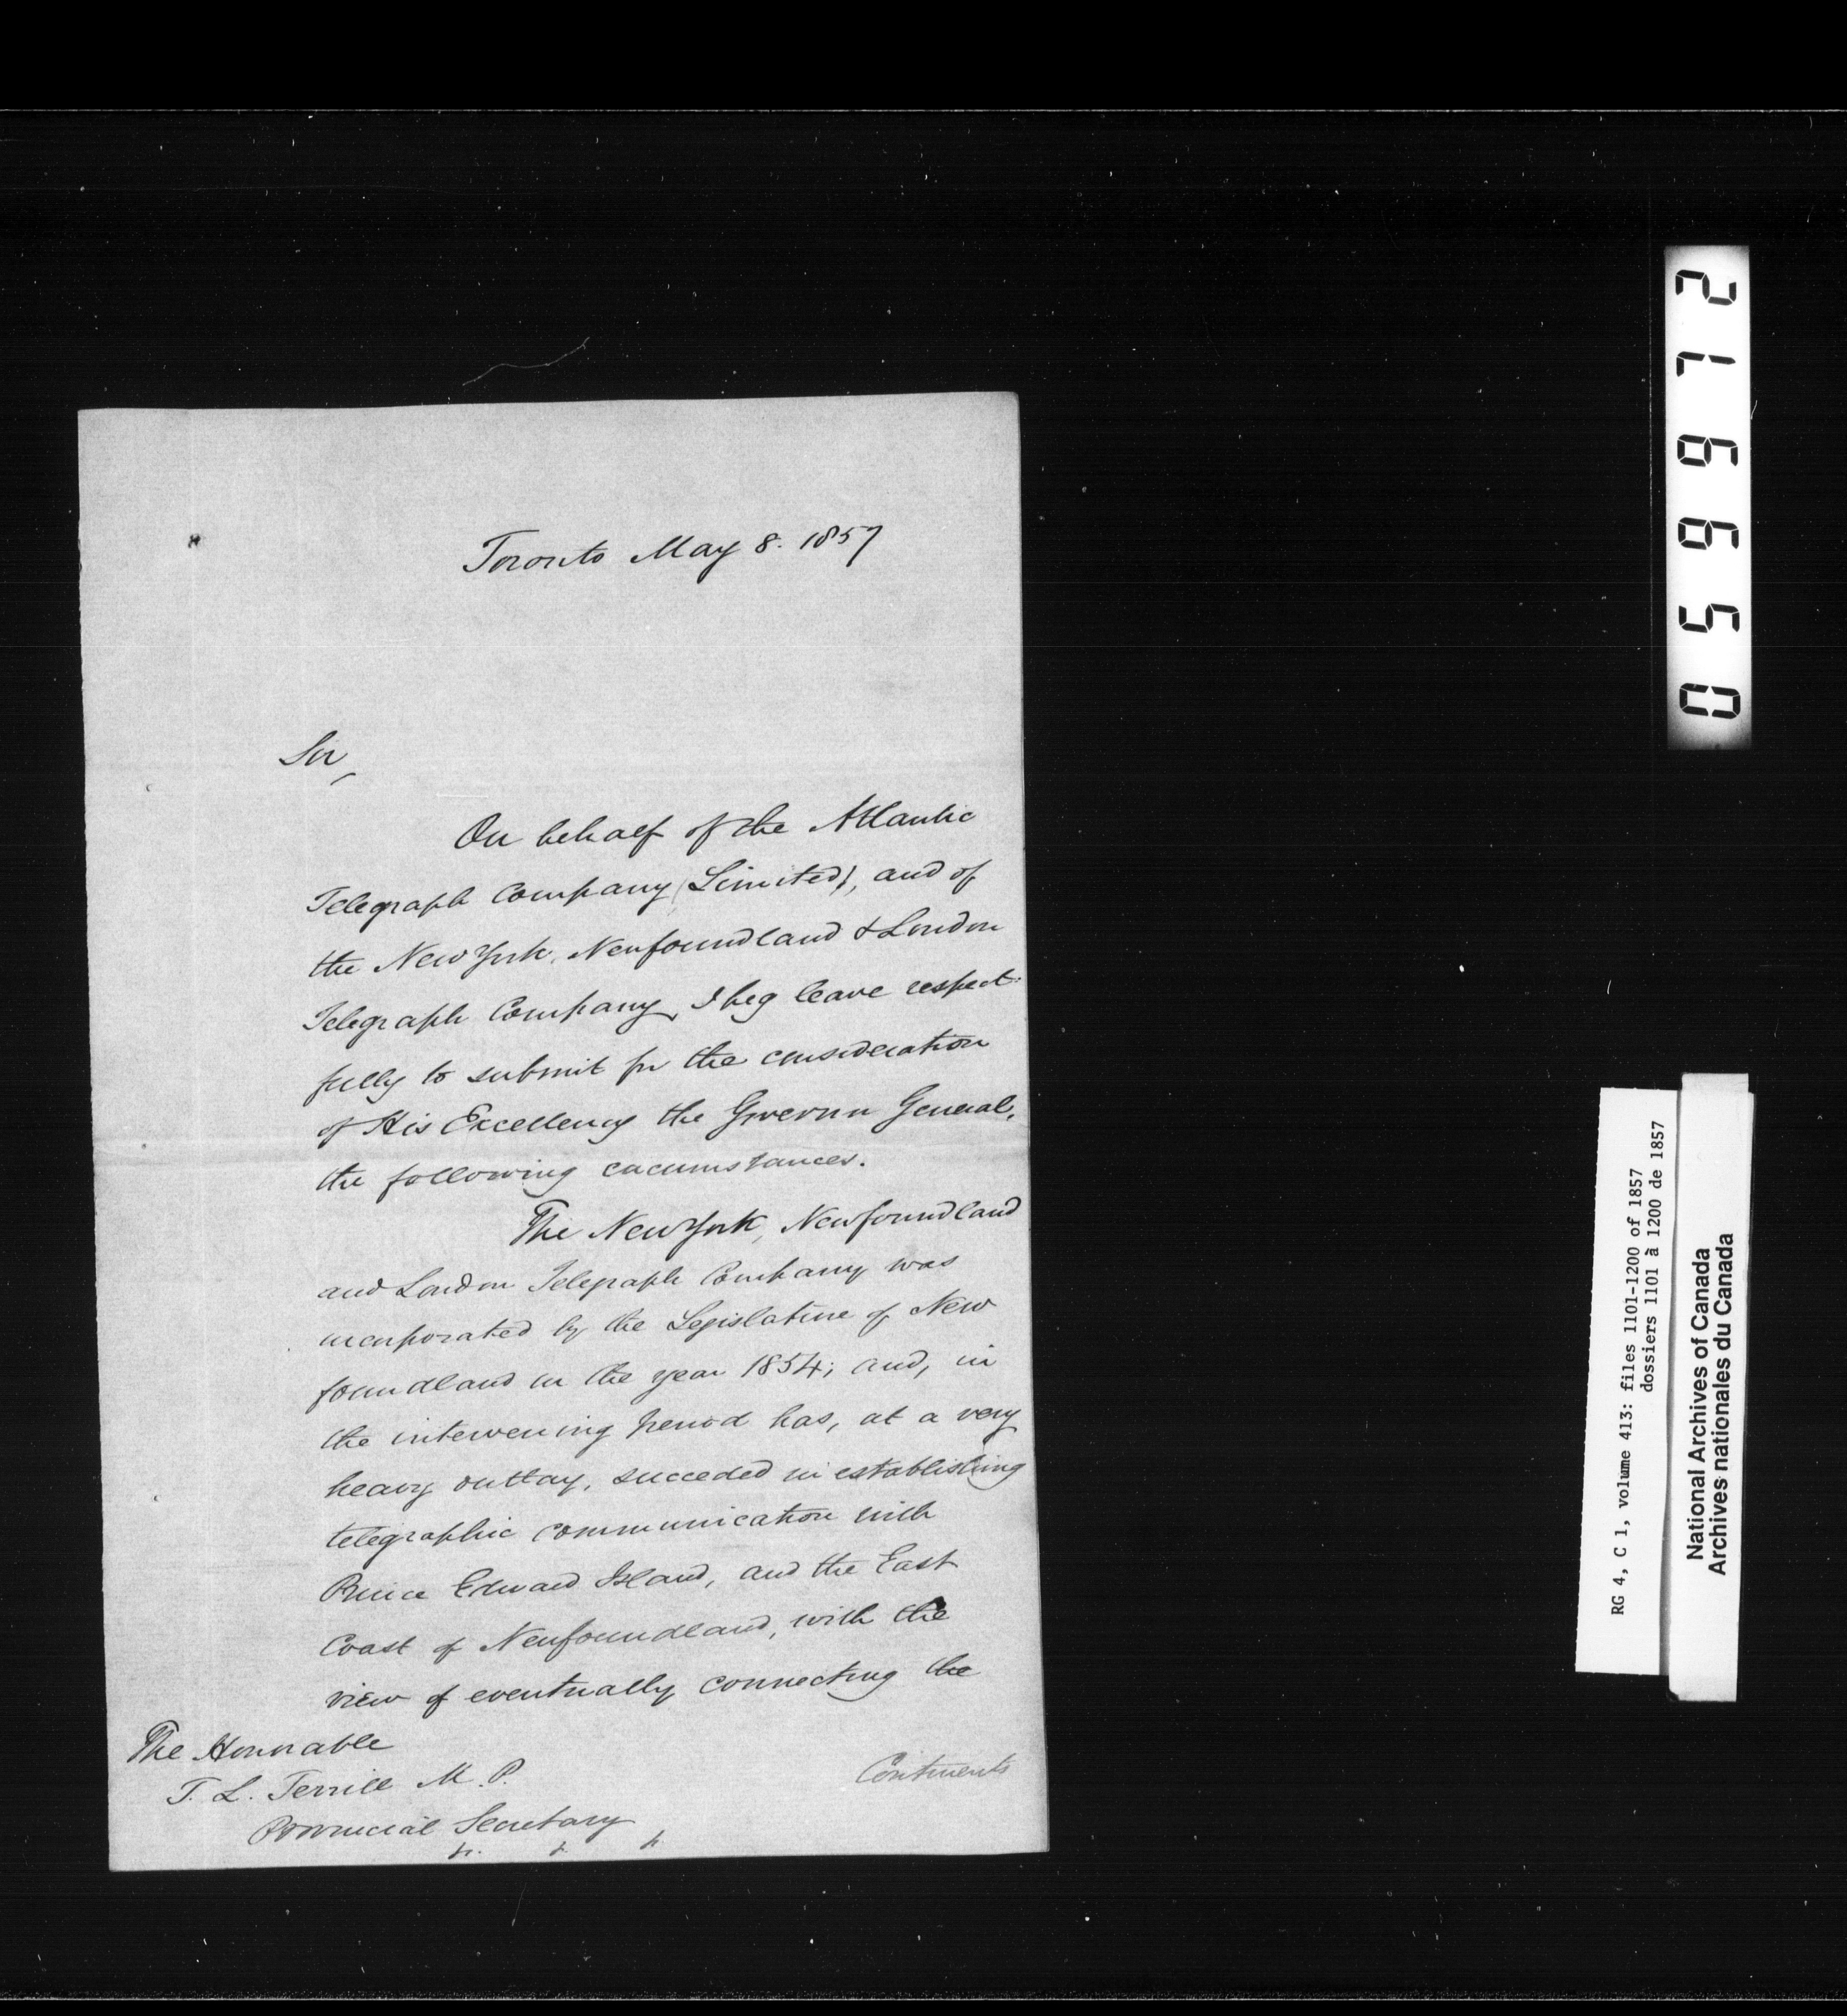 Toronto May 8. 1857
Sir,
On behalf of the Atlantic
Telegraph Company (Limited), and of
the New York, Newfoundland & London
Telegraph Company, I beg leave respect-
fully to submit for the consideration
of His Excellency the Governor General,
the following circumstances.
The New York, Newfoundland
and London Telegraph Company was
incorporated by the Legislature of New
foundland in the year 1854; and, in
the intervening period has, at a very
heavy outlay, succeded in establishing
telegraphic communication with
Prince Edward Island, and the East
Coast of Newfoundland, with the
view of eventually connecting the
Continents
The Honorable
T. L. Terrill M. P.
Provincial Secretary
&. & &
056612
RG 4, C 1, volume 413: files 1101-1200 of 1857
dossiers 1101 à 1200 de 1857
National Archives of Canada
Archives nationales du Canada